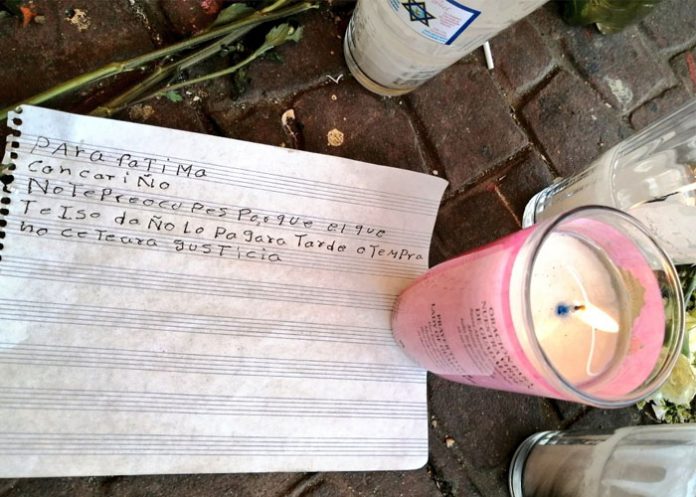 PARA FATIMA
CON CARIÑO
NO TE PREOCUPES PORQUE EL QUE
TE ISO DAÑO LO PAGARA TARDE O TEMPRA
NO CE TEARA GUSTICIA
ORACION
NUESTRA